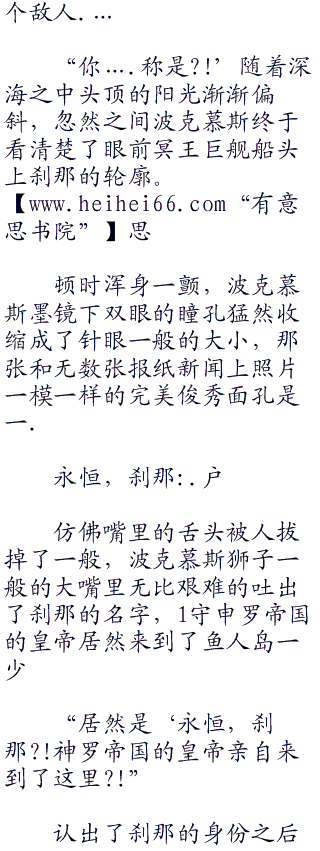 个敌人. ...
“你 ... .称是?!’随着深
海之中头顶的阳光渐渐偏
斜，忽然之间波克慕斯终于
看清楚了眼前冥王巨舰船头
上刹那的轮廓。
【www.heihei66.com“有意
思书院”】思
顿时浑身一颤，波克慕
斯墨镜下双眼的瞳孔猛然收
缩成了针眼一般的大小，那
张和无数张报纸新闻上照片
一模一样的完美俊秀面孔是
一.
永恒，刹那:. 户
仿佛嘴里的舌头被人拔
掉了一般，波克慕斯狮子一
般的大嘴里无比艰难的吐出
了刹那的名字，1守申罗帝国
的皇帝居然来到了鱼人岛一
少
“居然是‘永恒，刹
那?!神罗帝国的皇帝亲自来
到了这里?!”
认出了刹那的身份之后